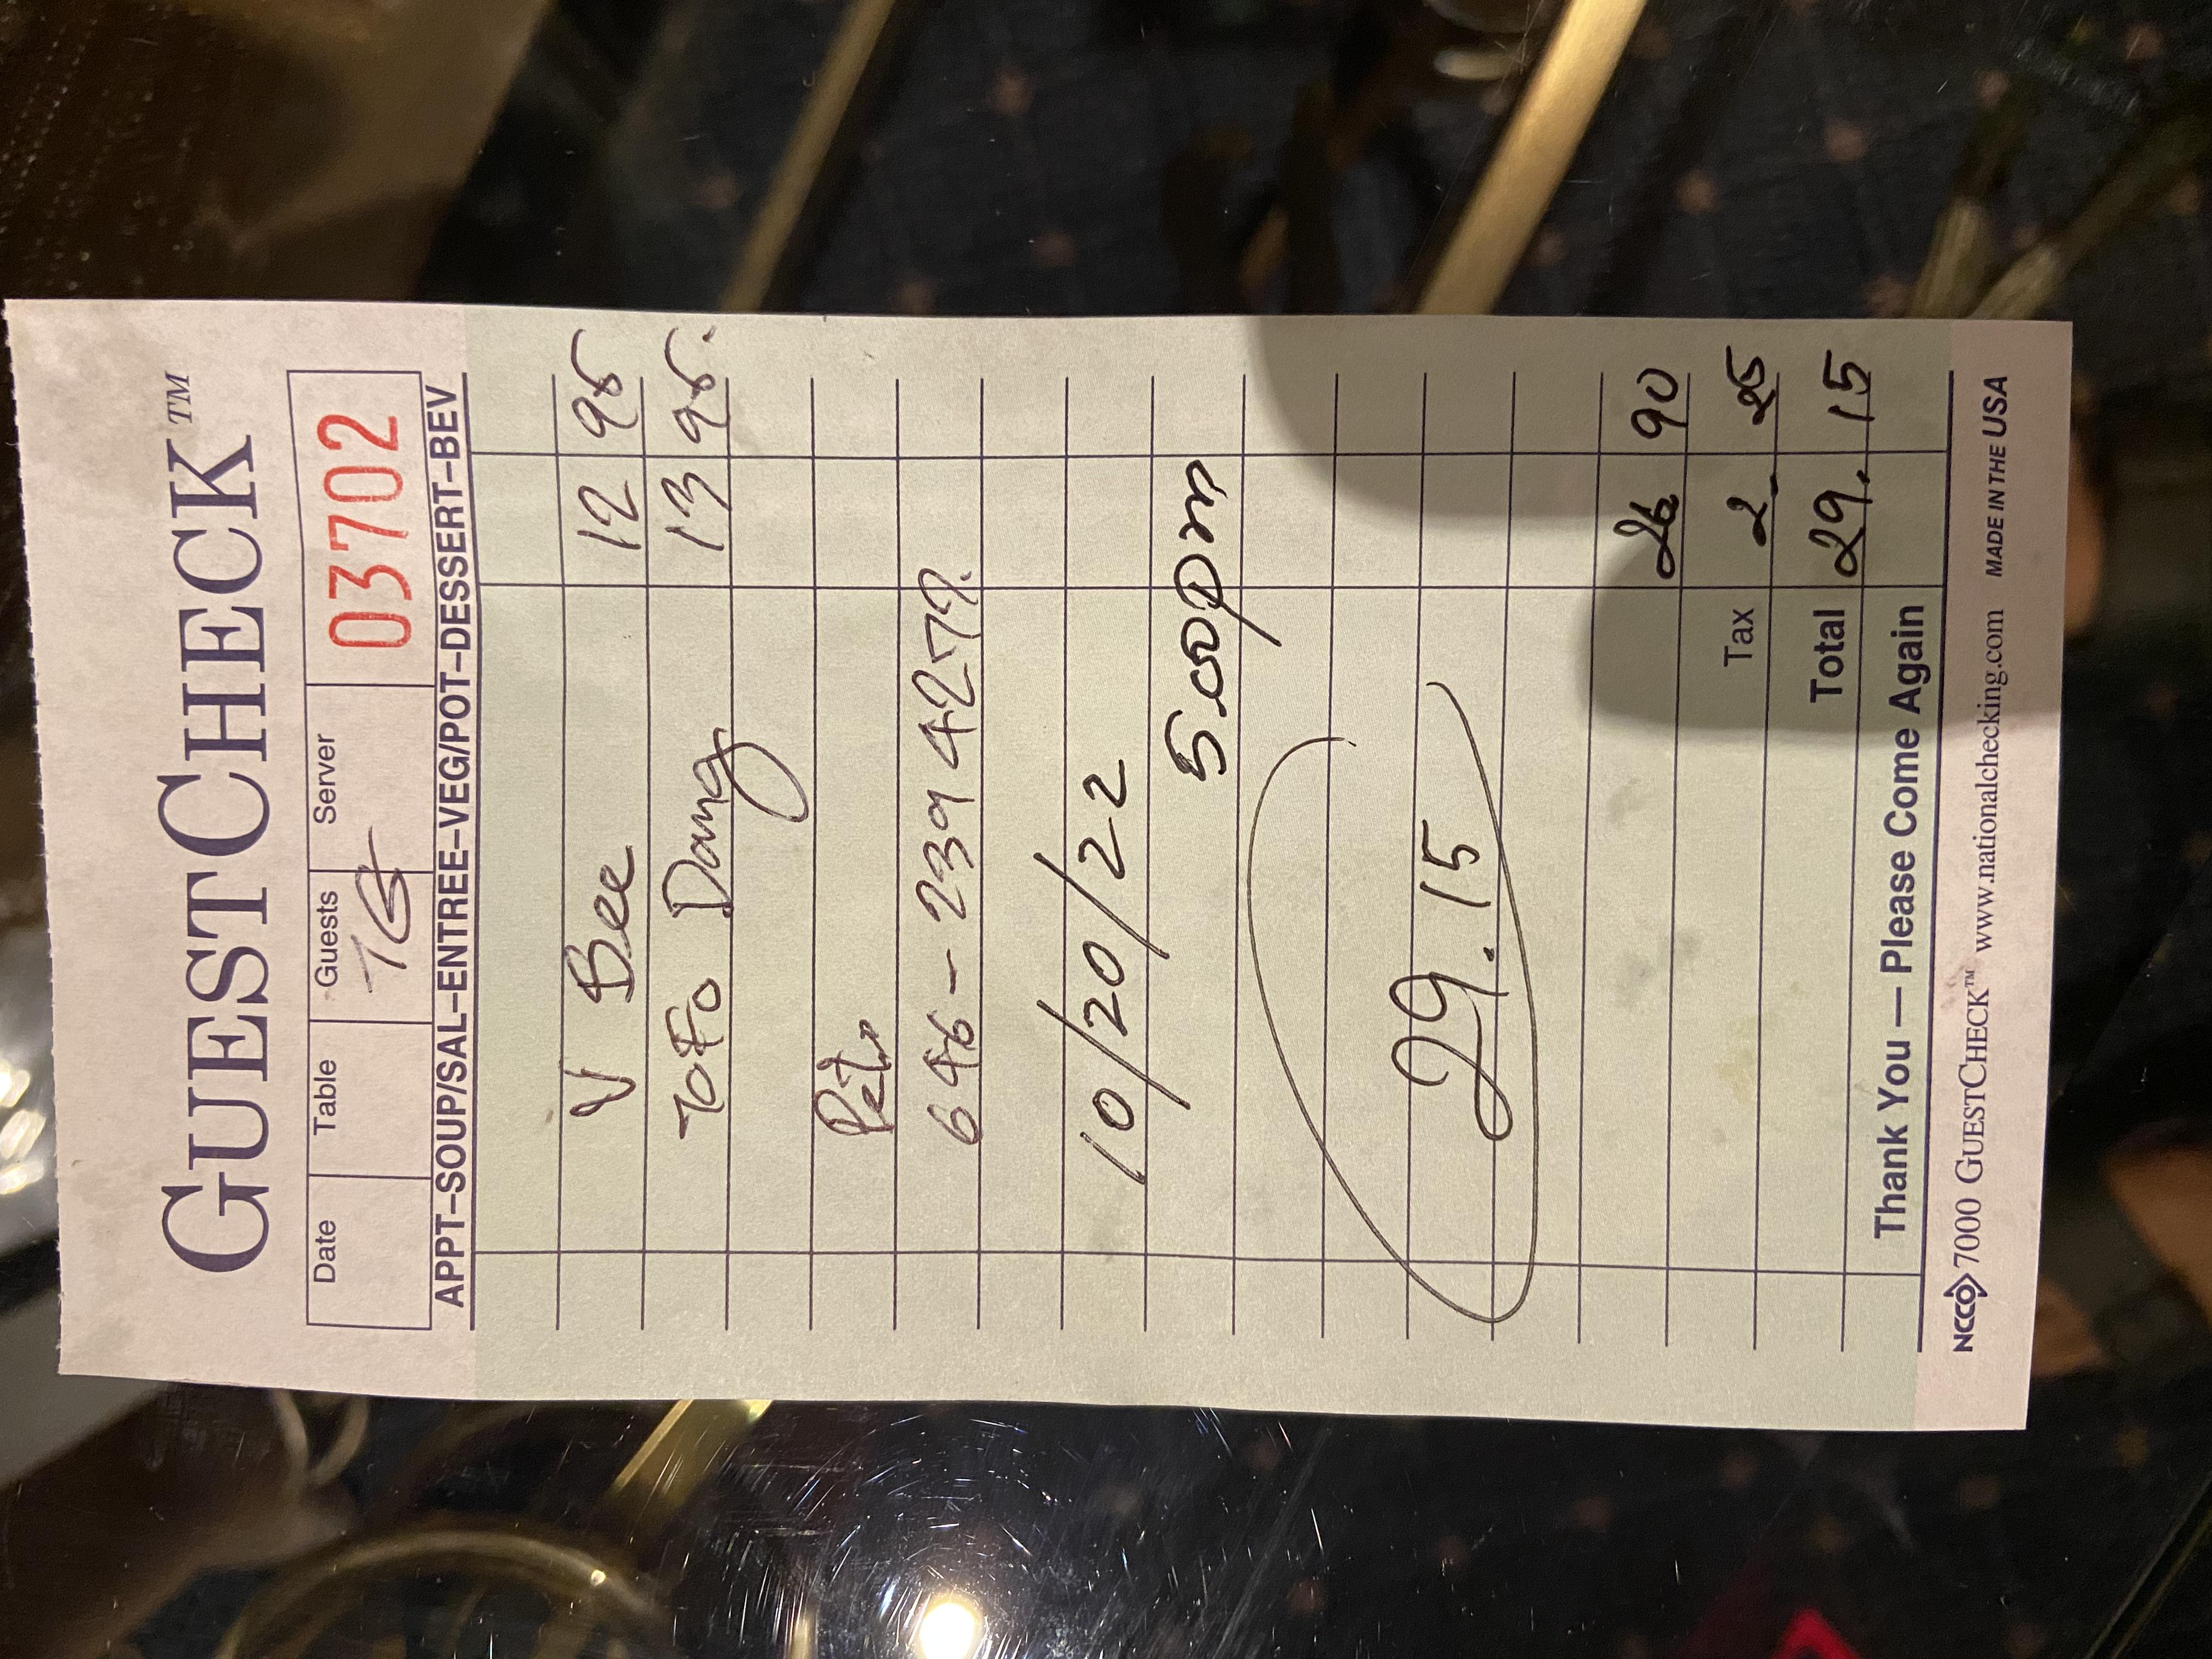 GUESTCHECK™
Date Table Guests Server 03702
TG
APPT–SOUP/SAL–ENTREE–VEG/POT–DESSERT–BEV
V Bee 12 95
ToFo Dang 13 95.
646-239 427
10/20/22
5.00pm
29.15
26 90
Tax 2. 25
Total 29. 15
Thank You — Please Come Again
NCCO 7000 GUESTCHECK™ www.nationalchecking.com MADE IN THE USA